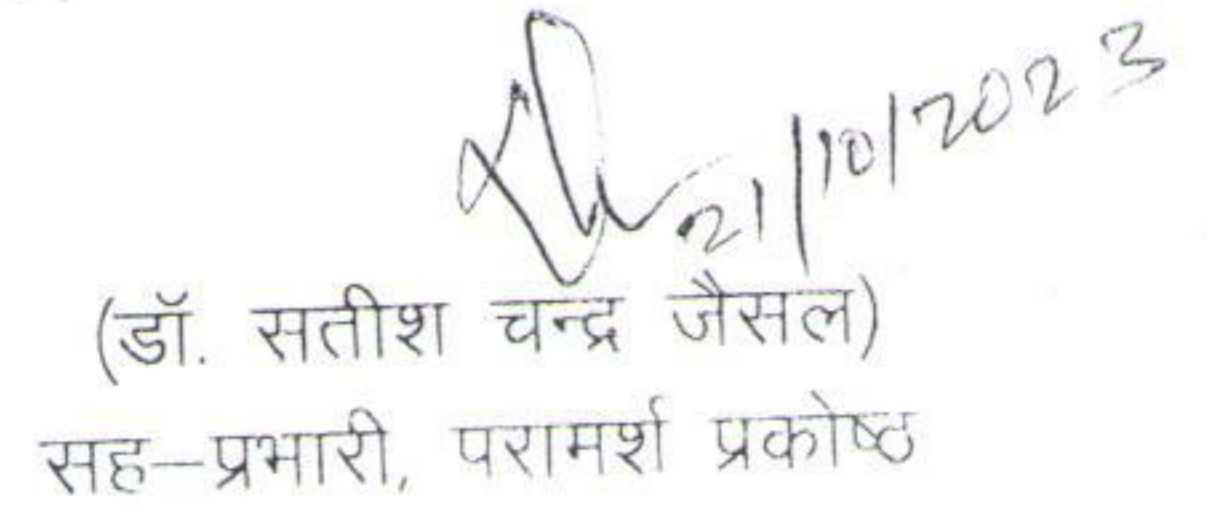 21/10/2023
(डॉ. सतीश चन्द्र जैसल)
सह–प्रभारी, परामर्श प्रकोष्ठ